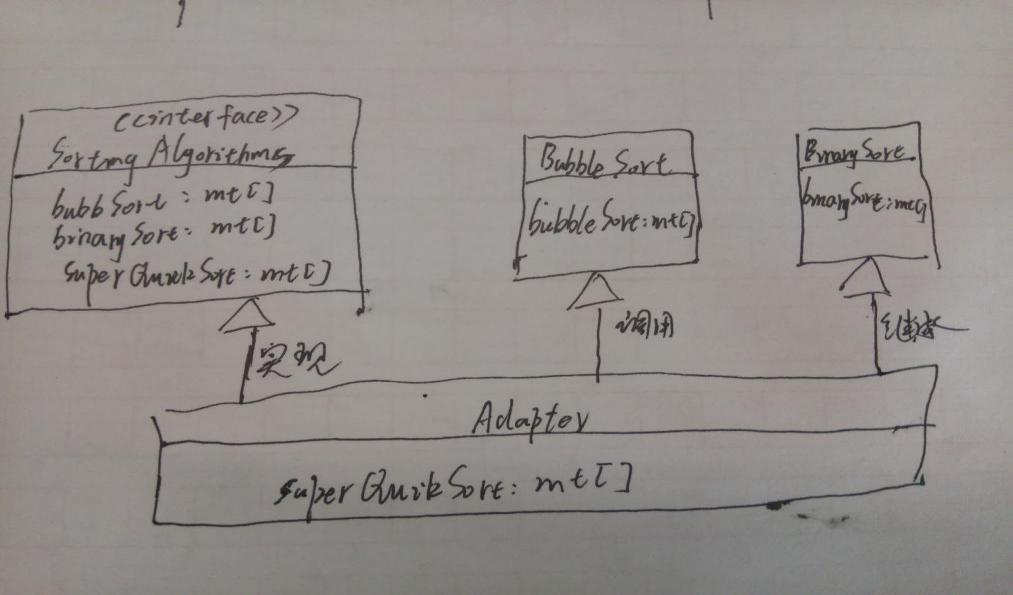 <<interface>>
Sorting Algorithms
bubbSort : int[]
binarySort : int[]
superQuickSort : int[]
BubbleSort
bubbleSort : int[]
BinarySort
binarySort : int[]
实现
调用
Adapter
superQuikSort : int[]